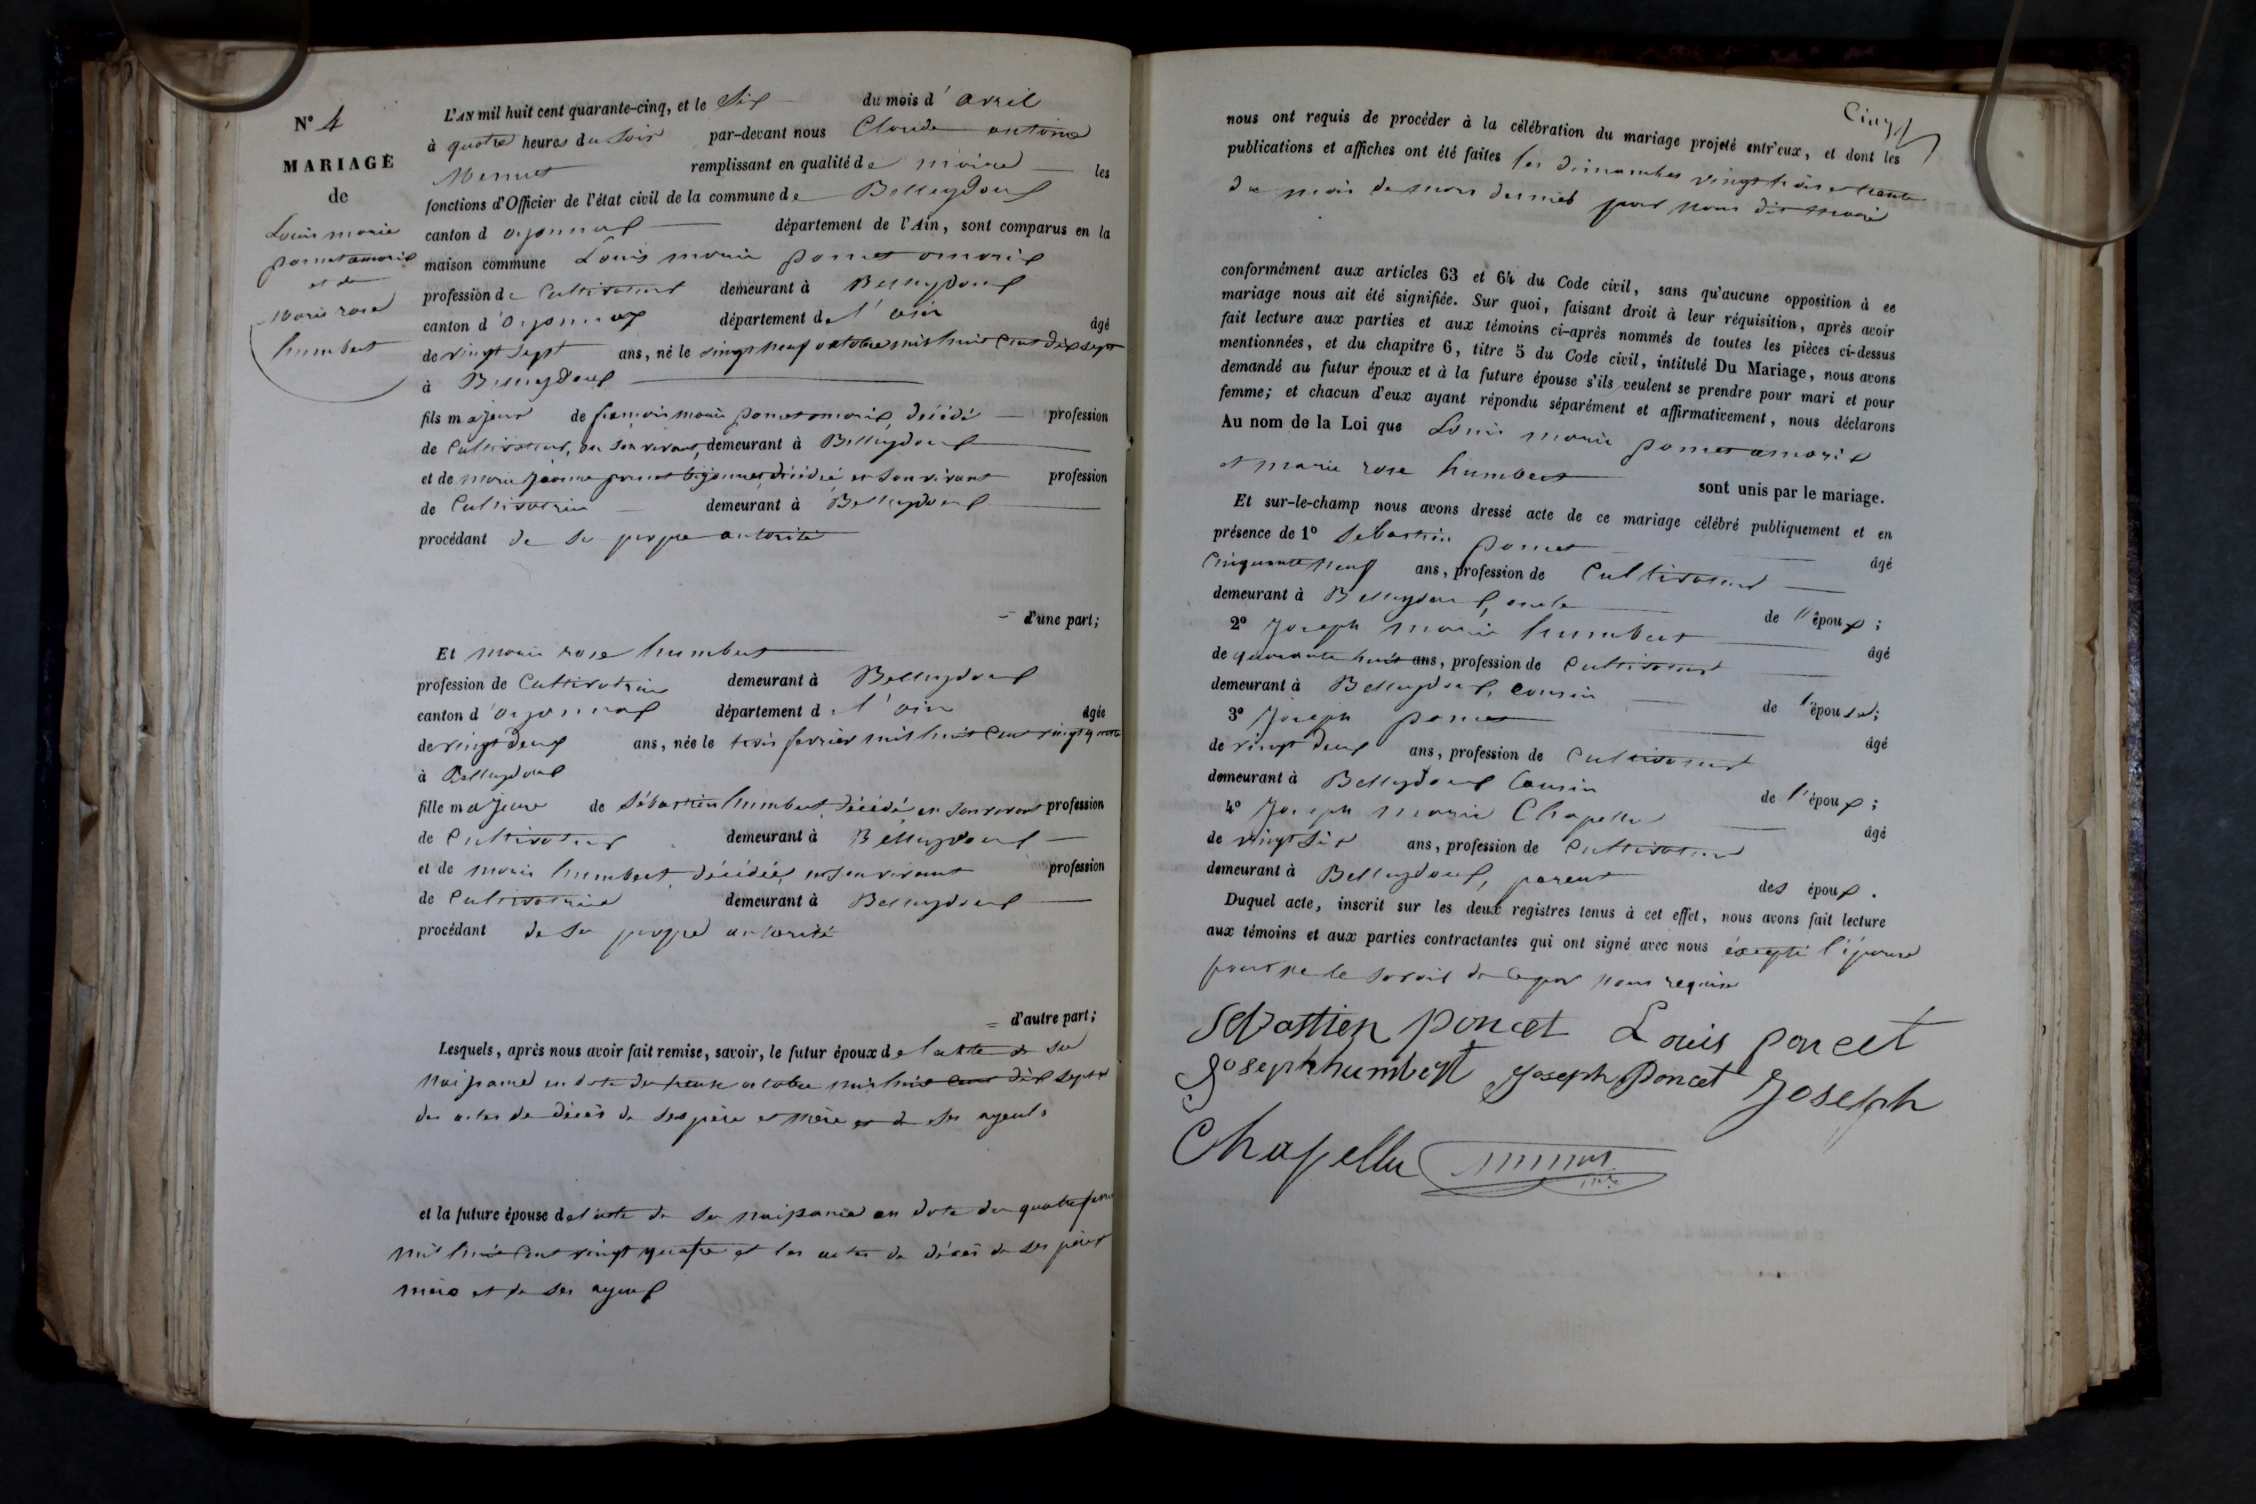 N° 4
MARIAGE
de
Louis marie
poncet amorix
et de
marie rose
humbert
L'AN mil huit cent quarante-cinq, et le Six du mois d'avril
à quatre heures du Soir par-devant nous Claude antoine
remplissant en qualité de maire les
fonctions d'Officier de l'état civil de la commune de Belleydoux
canton d'oyonnax département de l'Ain, sont comparus en la
maison commune Louis marie poncet amorix
profession de Cultivateur demeurant à Belleydoux
canton d'oyonnax département de l'ain âgé
de vingt Sept ans, né le vingt neuf octobre mil huit Cent dix sept
à Belleydoux
fils majeur de françois marie poncet amorix, décédé profession
de Cultivateur, en Son vivant, demeurant à Belleydoux
et de marie jeanne poncet décédée en Son vivant profession
de Cultivatrice demeurant à Belleydoux
procédant de sa propre autorité
d'une part;
Et marie rose humbert
profession de Cultivatrice demeurant à Belleydoux
canton d'oyonnax département de l'ain âgée
de vingt deux ans, née le trois fevrier mil huit Cent vingt quatre
à Belleydoux
fille majeure de Sébastien humbert, décédé, en Son vivant profession
de Cultivateur demeurant à Belleydoux
et de marie humbert, décédée, en Son vivant profession
de Cultivatrice demeurant à Belleydoux
procédant de Sa propre autorité
d'autre part;
Lesquels, après nous avoir fait remise, savoir, le futur époux de l'acte de Sa
naissance en date du trente octobre mil huit Cent dix Sept et
des actes de décès de Ses père et mère et de Ses ayeuls
et la future épouse de l'acte de Sa naissance en date du quatre
mil huit Cent vingt quatre et les actes de décès de Ses père et
mère et de Ses ayeux
Cinq
nous ont requis de procéder à la célébration du mariage projeté entr'eux, et dont les
publications et affiches ont été faites les dimanches vingt trois et trente
du mois de mars dernier par nous dit maire
conformément aux articles 63 et 64 du Code civil, sans qu'aucune opposition à ce
mariage nous ait été signifiée. Sur quoi, faisant droit à leur réquisition, après avoir
fait lecture aux parties et aux témoins ci-après nommés de toutes les pièces ci-dessus
mentionnées, et du chapitre 6, titre 5 du Code civil, intitulé Du Mariage, nous avons
demandé au futur époux et à la future épouse s'ils veulent se prendre pour mari et pour
femme; et chacun d'eux ayant répondu séparément et affirmativement, nous déclarons
Au nom de la Loi que Louis marie poncet amorix
et marie rose humbert sont unis par le mariage.
Et sur-le-champ nous avons dressé acte de ce mariage célébré publiquement et en
présence de 1° Sébastien poncet âgé
Cinquante neuf ans, profession de Cultivateur
demeurant à Belleydoux, oncle de l'époux;
2° Joseph marie humbert âgé
de quarante huit ans, profession de Cultivateur
demeurant à Belleydoux, Cousin de l'épouse;
3° Joseph poncet âgé
de vingt deux ans, profession de Cultivateur
demeurant à Belleydoux Cousin de l'époux;
4° Joseph marie Chapellu âgé
de vingt Six ans, profession de Cultivateur
demeurant à Belleydoux, parent des époux.
Duquel acte, inscrit sur les deux registres tenus à cet effet, nous avons fait lecture
aux témoins et aux parties contractantes qui ont signé avec nous éxcepté l'épouse
pour ne le savoir de ce par nous requise
Sebastien poncet Louis poncet
Joseph humbert Joseph Poncet Joseph
Chapellu